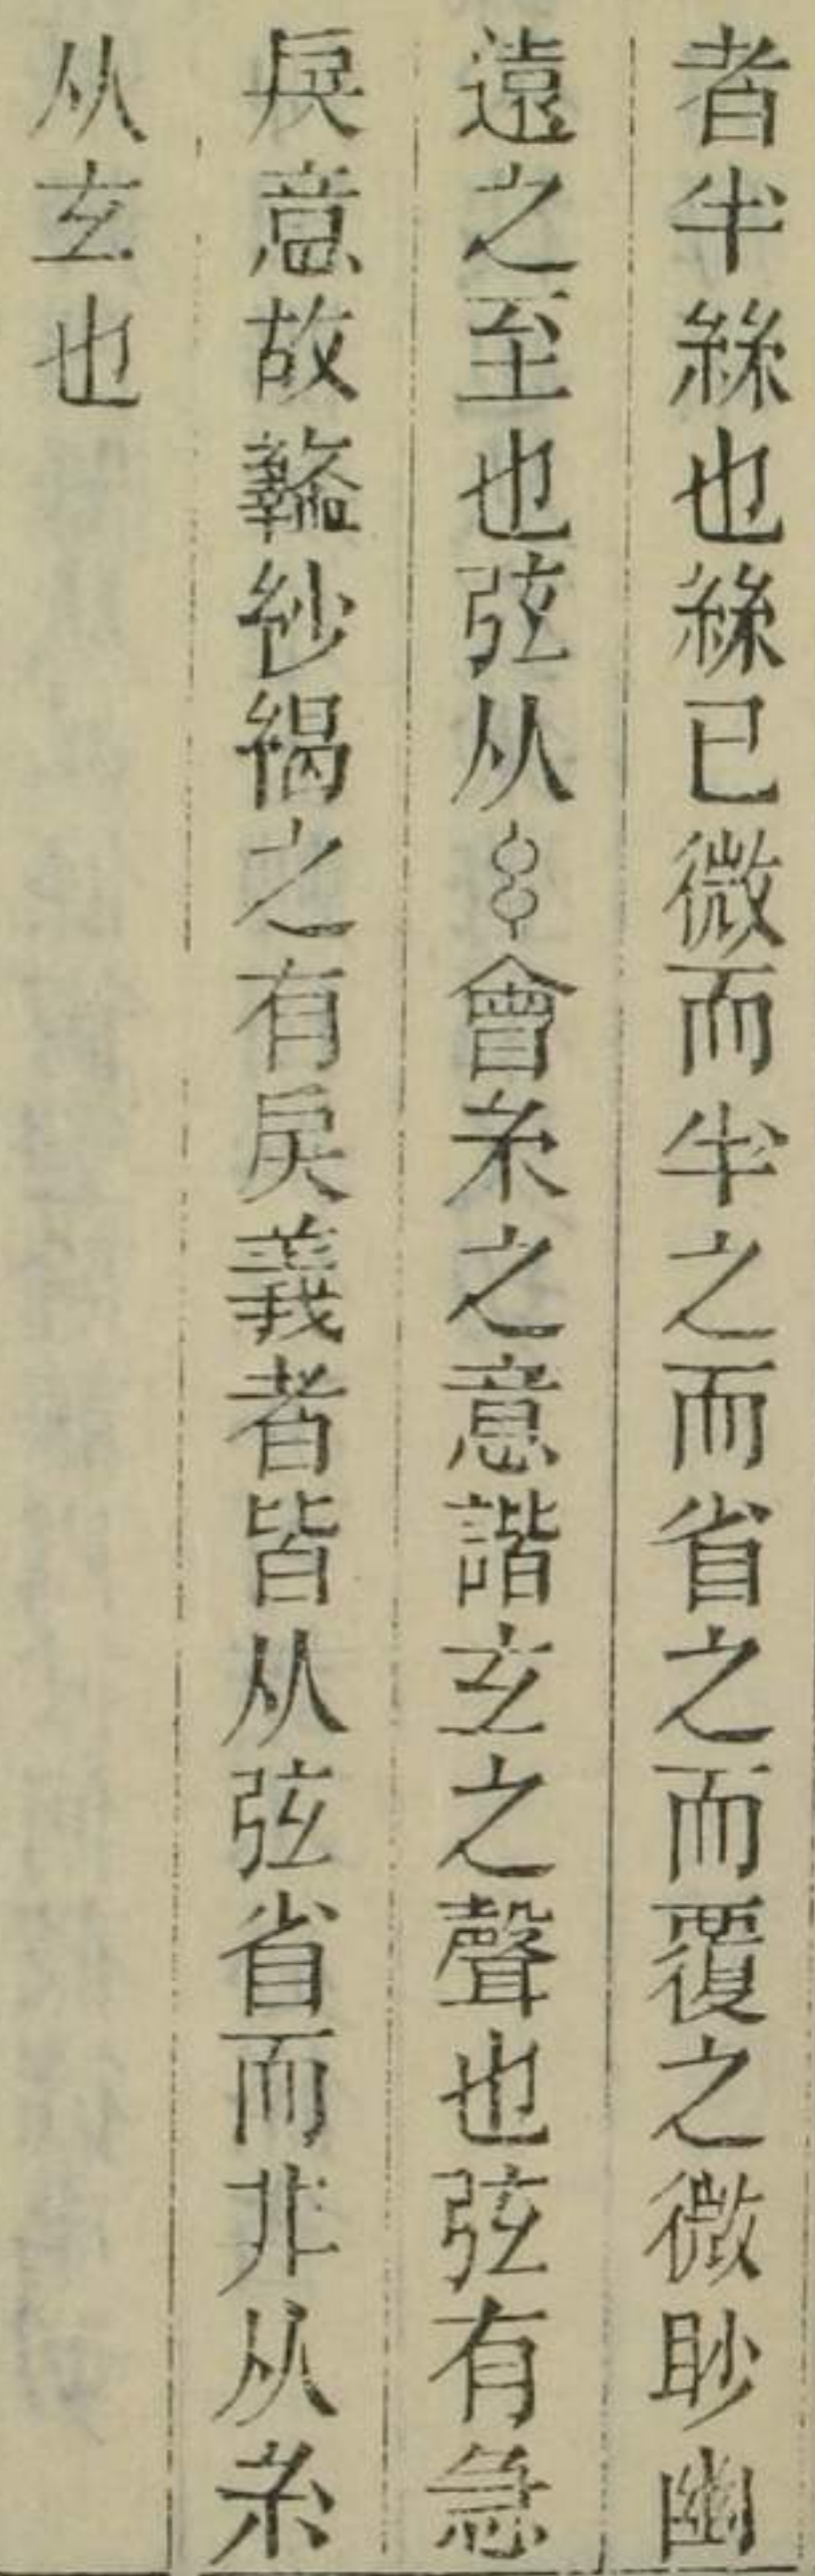 者半絲也絲已微而半之而省之而覆之微眇幽
遠之至也弦从會糸之意諧玄之聲也弦有急
戾意故盭紗之有戾義者皆从弦省而非从糸
从玄也